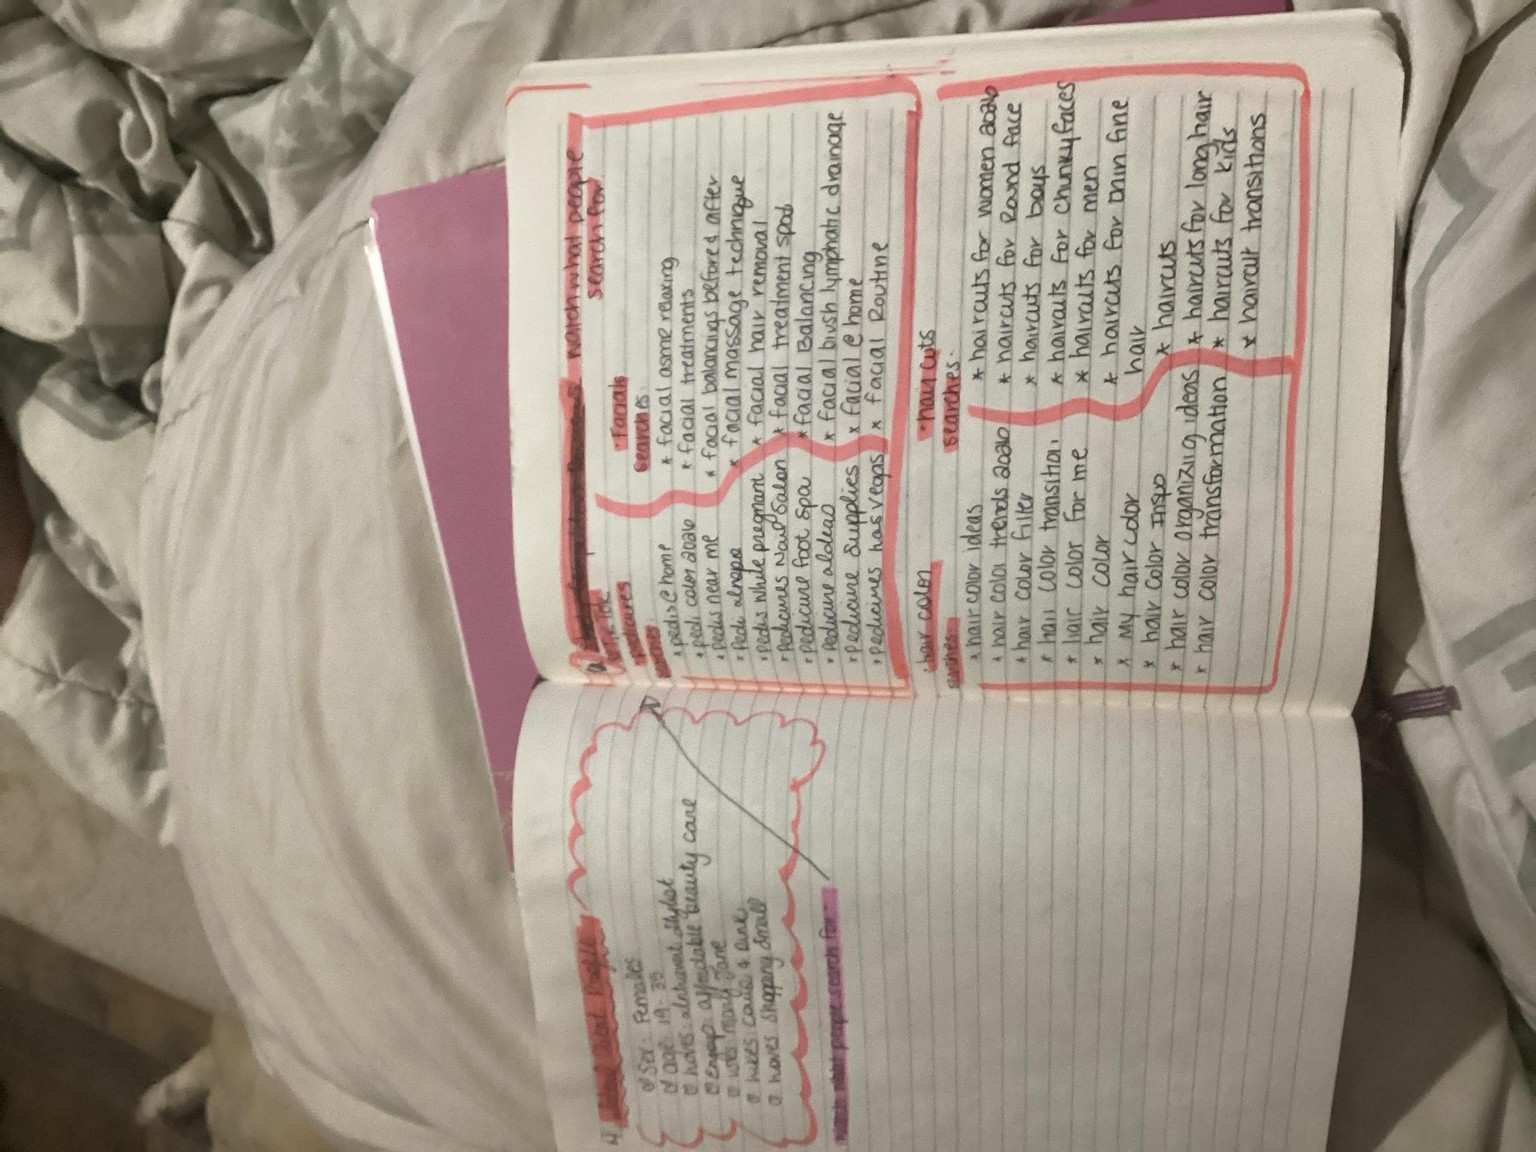 Ideal client Profile
Sex: Females
age: 19-35
loves: alternat stylist
Enjoys: affordable beauty care
uses mary Jane
likes cats & pink
loves shopping small
watch what people search for
watch what people
search for
pedicures
searches
* pedis @ home
* pedi color 2026
* pedis near me
* Pedi
* pedis while pregnant
* Pedicures Nail Salon
* pedicure foot spa
* Pedicure
* pedicure supplies
* pedicures las vegas
• Facials
searches:
* facial asmr relaxing
* facial treatments
* facial balancing before & after
* facial massage technique
* facial hair removal
* facial treatment spot
* facial Balancing
* facial brush lymphatic drainage
* facial @ home
* facial Routine
• hair color
searches:
* hair color ideas
* hair color trends 2026
* hair color filter
* hair color transition
* hair color for me
* hair color
* My hair color
* hair color Inspo
* hair color organizing ideas
* hair color transformation
• hair cuts
searches:
* haircuts for women 2026
* haircuts for Round face
* haircuts for boys
* haircuts for chunky faces
* haircuts for men
* haircuts for thin fine
hair
* haircuts
* haircuts for long hair
* haircuts for kids
* haircut transitions